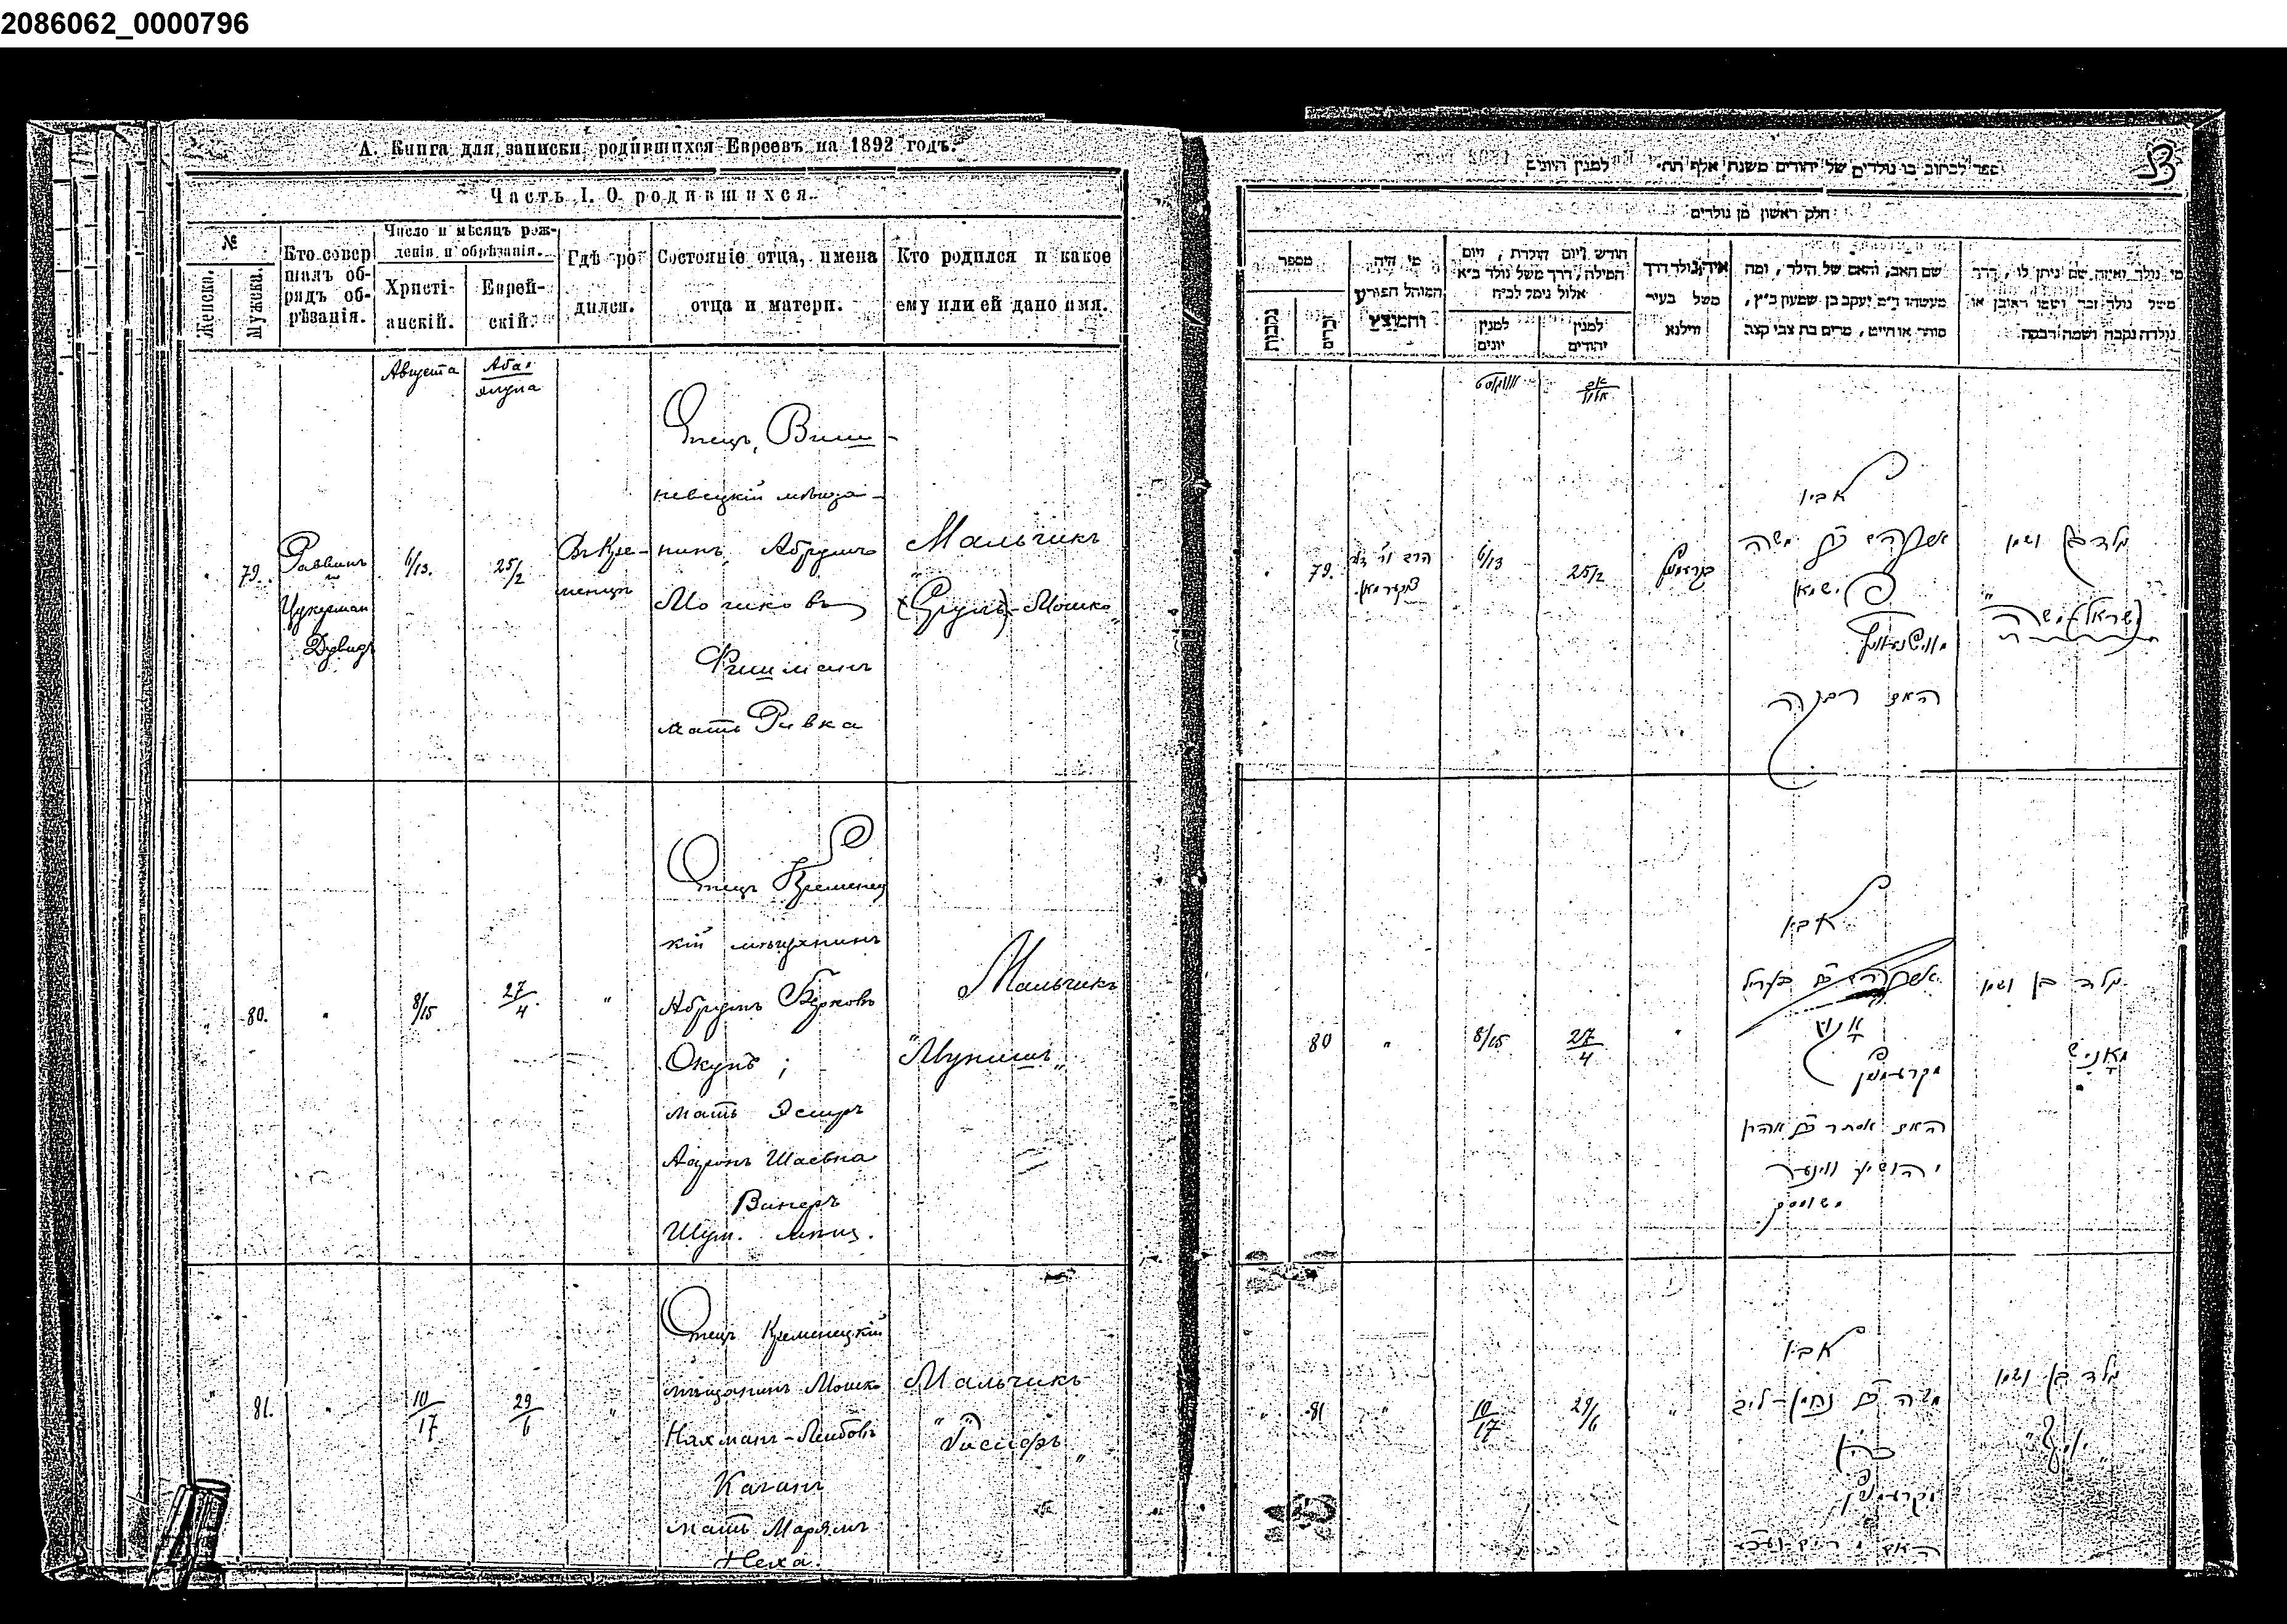 2086062_0000796
А. Книга для записки родившихся Евреевъ на 1892 годъ.
Часть I. О родившихся.
№
Женска.
Мужска.
Кто совер
шалъ об-
рядъ об-
рѣзанія.
Число и мѣсяцъ рож-
денія и обрѣзанія.
Христі-
анскій.
Еврей-
скій.
Гдѣ ро
дился.
Состояніе отца, имена
отца и матери.
Кто родился и какое
ему или ей дано имя.
Августа
Аба
элула
79.
Раввинъ
Цукерман
Дувидъ
6/13.
25/2
Въ Кре-
менцѣ
Отецъ, Виш-
невецкій мѣща-
нинъ Абрумъ
Мошковъ
Фишманъ
мать Ривка
Мальчикъ
(Срулъ)-Мошко
80.
8/15
27/4.
Отецъ Кременец
кій мѣщанинъ
Абрумъ Берковъ
Окунь;
мать Эстеръ
Аарон Шаевна
Винеръ
Шум. мѣщ.
Мальчикъ
"Мунишъ"
81.
10/17
29/6
Отецъ Кременецкій
мѣщанинъ Мошко
Нахманъ-Лейбовъ
Каганъ
мать Марямъ
Неха.
Мальчикъ
"Іосифъ"
ספר לכתוב בו נולדים של יהודים משנת אלף תת למנין היונים
חלק ראשון מן נולדים
מספר
נקבות
זכרים
מי היה
המוהל הפורע
והמוצץ
חודש ויום הולדת, ויום
המילה, דרך משל נולד כ״א
אלול נימל לכ״ח
למנין
יונים
למנין
יהודים
איך נולד דרך
משל בעיר
ווילנא
שם האב, והאם של הילד, ומה
מעשהו ד״מ יעקב בן שמעון כ״ץ,
סוחר או חייט, מרים בת צבי קצב
מי נולד ואיזה שם ניתן לו, דרך
משל נולד זכר ושמו ראובן או
נולדה נקבה ושמה רבקה
אויגוסט
אב
אלול
79.
6/13
25/2
קרעמניץ
אביו
אברהם בן משה
פישמאן
האם רבקה
נולד בן ושמו
(ישראל)-משה
80
8/15
27/4
אביו
אברהם בן בעריל
אקון
מקרעמניץ
האם אסתר בת אהרן
יהושיע ווינער
משומסק
נולד בן ושמו
מאניש
81
10/17
29/6
אביו
משה בן נחמן-ליב
כהן
מקרעמניץ
נולד בן ושמו
יוסף